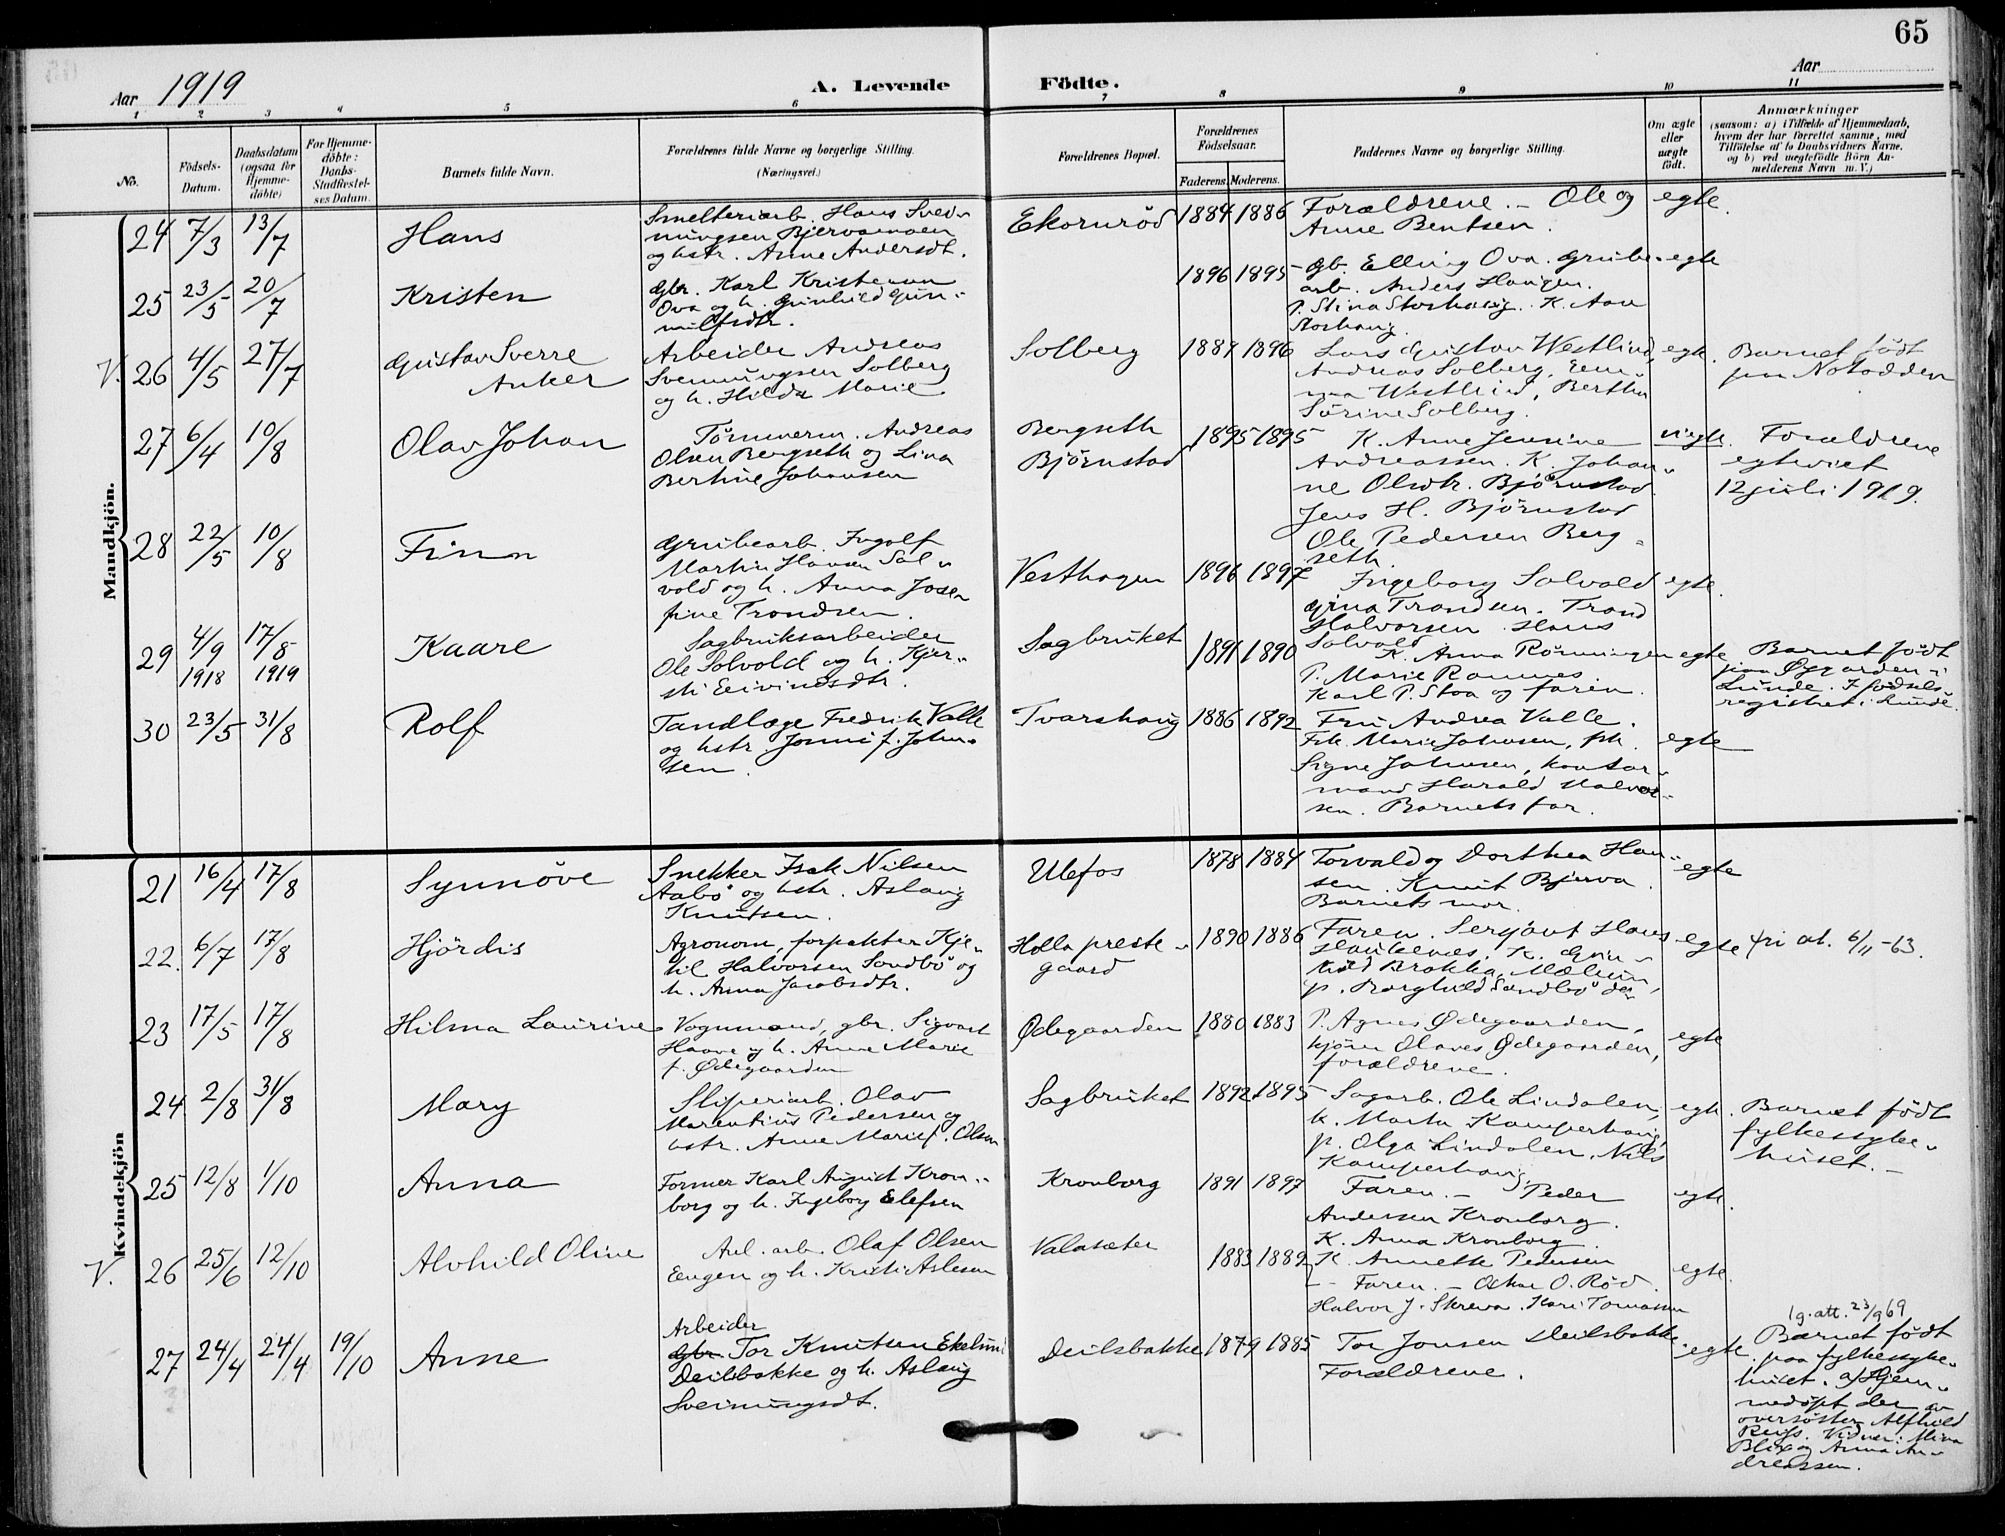 65
Aar 1919
A. Levende Födte.
Aar
1 2 3 4 5 6 7 8 9 10 11
No.
Födsels-
Datum.
Daabsdatum
(ogsaa for
Hjemme-
döbte)
For Hjemme-
döbte:
Daabs-
Stadfæstel-
ses Datum.
Barnets fulde Navn.
Forældrenes fulde Navne og borgerlige Stilling.
(Næringsvei.)
Forældrenes Bopæl.
Forældrenes
Födselsaar.
Faderens. Moderens.
Faddernes Navne og borgerlige Stilling.
Om ægte
eller
uægte
födt.
Anmærkninger
(saasom: a) i Tilfælde af Hjemmedaab,
hvem der har forrettet samme, med
Tilföielse af to Daabsvidners Navne.
og b) ved uægtefödte Börn An-
melderens Navn m. V.)
Mandkjön.
24 7/3 13/7 Hans
Smelteriarb. Hans Svei-
nungsen Bjervamoen
og hstr. Anne Andersdt.
Ekornrød 1884 1886
Forældrene. – Ole og
Anne Bentsen.
egte.
25 23/5 20/7 Kristen
Gbr. Karl Kristensen
Ova og h. Gunhild Gun-
nulfsdtr.
1896 1895
Gb. Elling Ova. Grube-
arb. Anders Haugen.
P. Stina Storhaug. K. Aan
Storhaug.
egte
V. 26 4/5 27/7 Gustav Sverre
Anker
Arbeider Andreas
Svennungsen Solberg
og h. Hilda Marie
Solberg 1889 1896
Lars Gustav Westlind,
Andreas Solberg, Em-
ma Westlind, Bertha
Sørine Solberg.
egte.
Barnet født
paa Notodden
27 6/4 10/8 Olav Johan
Tømmerm. Andreas
Olsen Bergseth og Lina
Bertine Johansen
Bergseth
Bjørnstad
1895 1895
K. Anne Jensine
Andreassen. K. Johan-
ne Olsdtr. Bjørnstad.
Jens H. Bjørnstad
Ole Pedersen Berg-
seth.
uegte.
Forældrene
egteviet
12 juli 1919.
28 22/5 10/8 Finn
Grubearb. Ingolf
Martin Hansen Sol-
vold og h. Anna Jose-
fine Trondsen.
Vesthagen 1896 1897
Ingeborg Solvold
Gina Trondsen. Trond
Halvorsen. Hans
Solvold
egte.
29 4/9 1918 17/8 1919 Kaare
Sagbruksarbeider
Ole Solvold og h. Kjer-
sti Eivindsdtr.
Sagbruket 1891 1890
K. Anna Rønningen
P. Marie Ramnes.
Karl P. Stoa og faren.
egte
Barnet født
paa Øygarden i
Lunde. I fødsels-
registret i Lunde.
30 23/5 31/8 Rolf
Tandlæge Fredrik Valle
og hstr. Jenni f. John-
sen.
Tvarshaug 1886 1892
Fru Andrea Valle.
Frk. Marie Johnsen, frk.
Signe Johnsen, kontor-
mand Harald Halvor-
sen. Barnets far.
egte
Kvindekjön
21 16/4 17/8 Synnöve
Snekker Isak Nilsen
Aabö og hstr. Aslaug
Knutsen.
Ulefos 1878 1884
Torvald og Dorthea Han-
sen. Knut Bjerva.
Barnets mor.
egte
22. 6/7 17/8 Hjördis
Agronom, forpakter Kje-
til Halvorsen Sandbö og
h. Anna Jacobsdtr.
Holla preste-
gaard
1890 1886
Faren. Serjant Hans
Haukenes. K. Gun-
hild Brokka, Mælum,
p. Borghild Sandbö
egte
fri at. 6/11-63.
23 17/5 17/8 Hilma Laurine
Vognmand, gbr. Sigvart
Haave og h. Anne Marie
f. Ødegaarden
Ødegaarden 1880 1883
P. Agnes Ødegaarden,
Olaves Ødegaarden,
forældrene.
egte
24 2/8 31/8 Mary
Sliperiarb. Olav
Marentius Pedersen og
hstr. Anne Marie f. Olsen
Sagbruket 1892 1895
Sagarb. Ole Lindalen,
k. Marta Kamperhaug,
p. Olga Lindalen, Nils
Kamperhaug.
egte.
Barnet født
fylkessyke-
huset. –
25 12/8 1/10 Anna
Former Karl August Kron-
borg og h. Ingeborg Elefsen
Kronborg 1891 1897
Faren. – Peder
Andersen Kronborg.
K. Anna Kronborg.
egte.
V. 26 25/6 12/10 Alvhild Oline
Anl. arb. Olaf Olsen
Eengen og h. Kristi Aslesen
Valasæter 1883 1889
K. Annette Pedersen
Faren. – Oskar O. Röd.
Halvor J. Skreva. Kari Tomassen
egte.
27 24/4 24/4 19/10 Anne
Arbeider
Gbr. Tor Knutsen Ekelund
Deilsbakke og h. Aslaug
Sveinungsdt.
Deilsbakke 1879 1885
Tor Jonsen Deilsbakke
Forældrene.
egte.
lg. att. 23/9 69
Barnet født
paa fylkessyke-
huset. a) Hjem-
medøpt der av
oversøster Alfhild
Reiss. Vidner: Mina
Blix og Anna An-
dreassen.